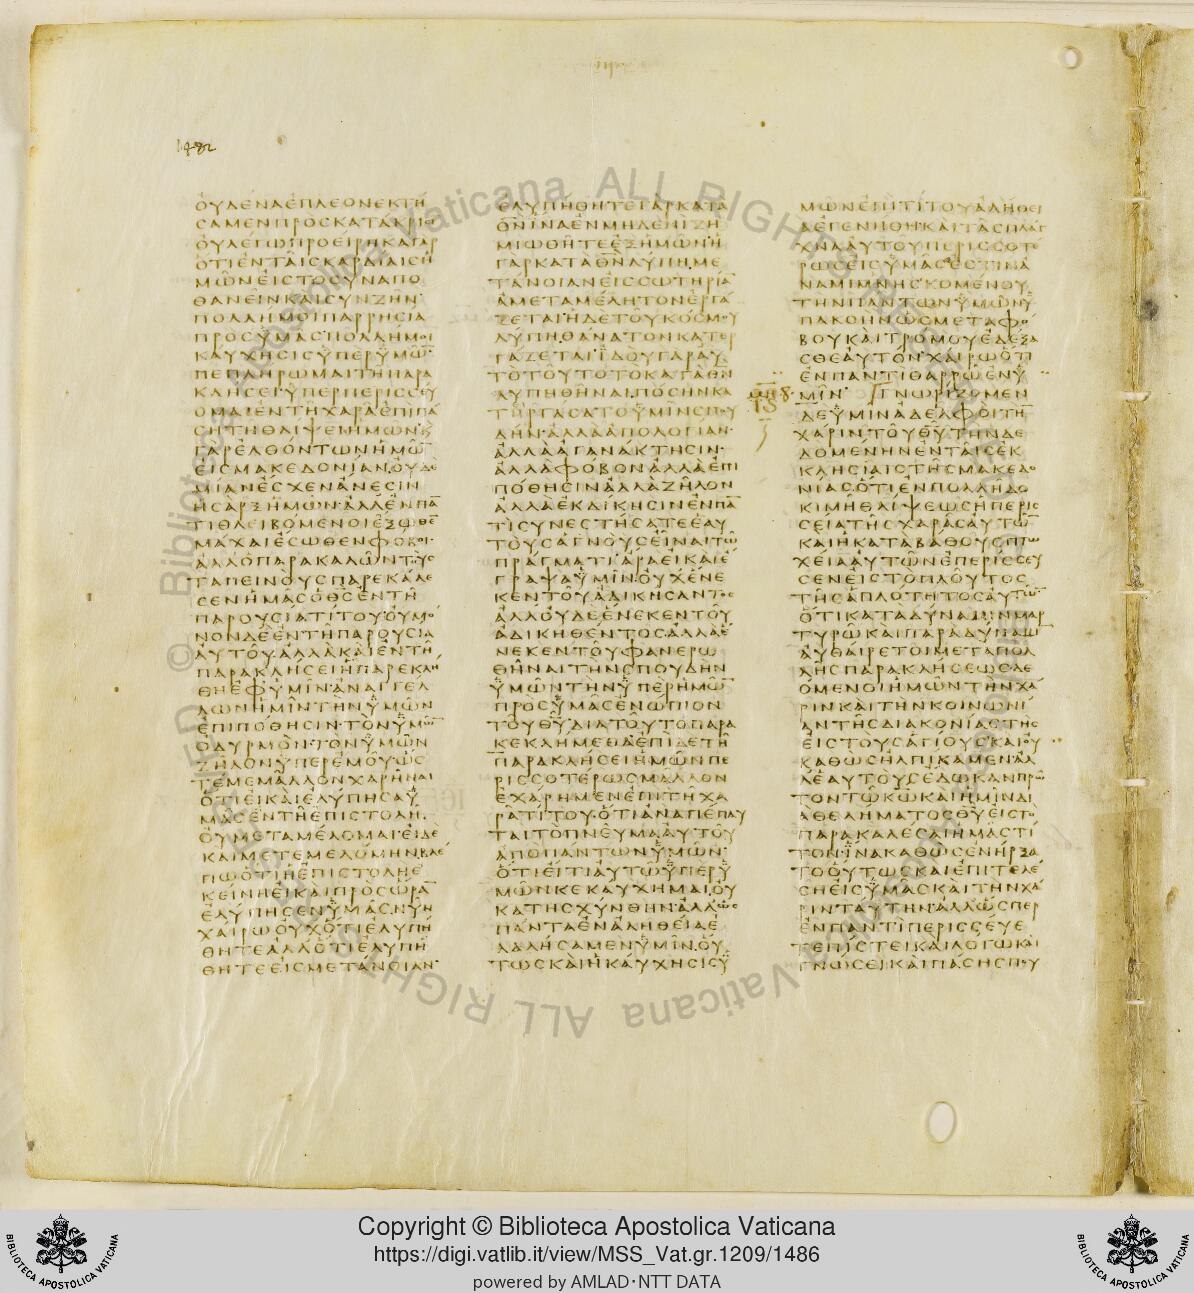 1482
ΟΥΔΕΝΑΕΠΛΕΟΝΕΚΤΗ
ΣΑΜΕΝΠΡΟΣΚΑΤΑΚΡΙΣΙ̅
ΟΥΛΕΓΩΠΡΟΕΙΡΗΚΑΓΑΡ
ΟΤΙΕΝΤΑΙΣΚΑΡΔΙΑΙΣΗ
ΜΩΝΕΙΣΤΟΣΥΝΑΠΟ
ΘΑΝΕΙΝΚΑΙΣΥΝΖΗΝ
ΠΟΛΛΗΜΟΙΠΑΡΡΗΣΙΑ
ΠΡΟΣΥΜΑΣΠΟΛΛΗΜΟΙ
ΚΑΥΧΗΣΙΣΥΠΕΡΥΜΩ̅
ΠΕΠΛΗΡΩΜΑΙΤΗΠΑΡΑ
ΚΛΗΣΕΙΥΠΕΡΠΕΡΙΣΣΕΥ
ΟΜΑΙΕΝΤΗΧΑΡΑΕΠΙΠΑ
ΣΗΤΗΘΛΙΨΕΙΗΜΩΝΚ
ΓΑΡΕΛΘΟΝΤΩΝΗΜΩ̅
ΕΙΣΜΑΚΕΔΟΝΙΑΝΟΥΔΕ
ΜΙΑΝΕΣΧΕΝΑΝΕΣΙΝ
ΗΣΑΡΞΗΜΩΝΑΛΛΕΝΠΑ̅
ΤΙΘΛΕΙΒΟΜΕΝΟΙΕΞΩΘΕ̅
ΜΑΧΑΙΕΣΩΘΕΝΦΟΒΟΙ
ΑΛΛΟΠΑΡΑΚΑΛΩΝΤΟΥΣ
ΤΑΠΕΙΝΟΥΣΠΑΡΕΚΑΛΕ
ΣΕΝΗΜΑΣΟΘ̅Σ̅ΕΝΤΗ
ΠΑΡΟΥΣΙΑΤΙΤΟΥΟΥΜΟ
ΝΟΝΔΕΕΝΤΗΠΑΡΟΥΣΙΑ
ΑΥΤΟΥΑΛΛΑΚΑΙΕΝΤΗ
ΠΑΡΑΚΛΗΣΕΙΗΠΑΡΕΚΛΗ
ΘΗΕΦΥΜΙΝΑΝΑΓΓΕΛ
ΛΩΝΗΜΙΝΤΗΝΥΜΩΝ
ΕΠΙΠΟΘΗΣΙΝΤΟΝΥΜΩ̅
ΟΔΥΡΜΟΝΤΟΝΥΜΩΝ
ΖΗΛΟΝΥΠΕΡΕΜΟΥΩΣ
ΤΕΜΕΜΑΛΛΟΝΧΑΡΗΝΑΙ
ΟΤΙΕΙΚΑΙΕΛΥΠΗΣΑΥ
ΜΑΣΕΝΤΗΕΠΙΣΤΟΛΗ
ΟΥΜΕΤΑΜΕΛΟΜΑΙΕΙΔΕ
ΚΑΙΜΕΤΕΜΕΛΟΜΗΝΒΛΕ
ΠΩΟΤΙΗΕΠΙΣΤΟΛΗΕ
ΚΕΙΝΗΕΙΚΑΙΠΡΟΣΩΡΑ̅
ΕΛΥΠΗΣΕΝΥΜΑΣΝΥΝ
ΧΑΙΡΩΟΥΧΟΤΙΕΛΥΠΗ
ΘΗΤΕΑΛΛΟΤΙΕΛΥΠΗ
ΘΗΤΕΕΙΣΜΕΤΑΝΟΙΑΝ
ΕΛΥΠΗΘΗΤΕΓΑΡΚΑΤΑ
Θ̅Ν̅ΙΝΑΕΝΜΗΔΕΝΙΖΗ
ΜΙΩΘΗΤΕΕΞΗΜΩΝΗ
ΓΑΡΚΑΤΑΘ̅Ν̅ΛΥΠΗΜΕ
ΤΑΝΟΙΑΝΕΙΣΣΩΤΗΡΙΑ̅
ΑΜΕΤΑΜΕΛΗΤΟΝΕΡΓΑ
ΖΕΤΑΙΗΔΕΤΟΥΚΟΣΜΟΥ
ΛΥΠΗΘΑΝΑΤΟΝΚΑΤΕΡ
ΓΑΖΕΤΑΙΙΔΟΥΓΑΡΑΥ
ΤΟΤΟΥΤΟΤΟΚΑΤΑΘ̅Ν̅
ΛΥΠΗΘΗΝΑΙΠΟΣΗΝΚΑ
ΤΙΡΓΑΣΑΤΟΥΜΙΝΣΠΟΥ
ΔΗΝΑΛΛΑΑΠΟΛΟΓΙΑΝ
ΑΛΛΑΑΓΑΝΑΚΤΗΣΙΝ
ΑΛΛΑΦΟΒΟΝΑΛΛΑΕΠΙ
ΠΟΘΗΣΙΝΑΛΛΑΖΗΛΟΝ
ΑΛΛΑΕΚΔΙΚΗΣΙΝΕΝΠΑ̅
ΤΙΣΥΝΕΣΤΗΣΑΤΕΕΑΥ
ΤΟΥΣΑΓΝΟΥΣΕΙΝΑΙΤΩ
ΠΡΑΓΜΑΤΙΑΡΑΕΙΚΑΙΕ
ΓΡΑΨΑΥΜΙΝΟΥΧΕΝΕ
ΚΕΝΤΟΥΑΔΙΚΗΣΑΝΤΟΣ
ΑΛΛΟΥΔΕΕΝΕΚΕΝΤΟΥ
ΑΔΙΚΗΘΕΝΤΟΣΑΛΛΑΕ
ΝΕΚΕΝΤΟΥΦΑΝΕΡΩ
ΘΗΝΑΙΤΗΝΣΠΟΥΔΗΝ
ΥΜΩΝΤΗΝΥΠΕΡΗΜΩ̅
ΠΡΟΣΥΜΑΣΕΝΩΠΙΟΝ
ΤΟΥΘ̅Υ̅ΔΙΑΤΟΥΤΟΠΑΡΑ
ΚΕΚΛΗΜΕΘΑΕΠΙΔΕΤΗ
ΠΑΡΑΚΛΗΣΕΙΗΜΩΝΠΕ
ΡΙΣΣΟΤΕΡΩΣΜΑΛΛΟΝ
ΕΧΑΡΗΜΕΝΕΠΙΤΗΧΑ
ΡΑΤΙΤΟΥΟΤΙΑΝΑΠΕΠΑΥ
ΤΑΙΤΟΠΝΕΥΜΑΑΥΤΟΥ
ΑΠΟΠΑΝΤΩΝΥΜΩΝ
ΟΤΙΕΙΤΙΑΥΤΩΥΠΕΡΥ
ΜΩΝΚΕΚΑΥΧΗΜΑΙΟΥ
ΚΑΤΗΣΧΥΝΘΗΝΑΛΛΩΣ
ΠΑΝΤΑΕΝΑΛΗΘΕΙΑΕ
ΛΑΛΗΣΑΜΕΝΥΜΙΝΟΥ
ΤΩΣΚΑΙΗΚΑΥΧΗΣΙΣΥ
ΜΩΝΕΠΙΤΙΤΟΥΑΛΗΘΕΙ
ΑΕΓΕΝΗΘΗΚΑΙΤΑΣΠΛΑΓ
ΧΝΑΑΥΤΟΥΠΕΡΙΣΣΟΤΕ
ΡΩΣΕΙΣΥΜΑΣΕΣΤΙΝΑ
ΝΑΜΙΜΝΗΣΚΟΜΕΝΟΥ
ΤΗΝΠΑΝΤΩΝΥΜΩΝΥ
ΠΑΚΟΗΝΩΣΜΕΤΑΦΟ
ΒΟΥΚΑΙΤΡΟΜΟΥΕΔΕΞΑ
ΣΘΕΑΥΤΟΝΧΑΙΡΩΟΤΙ
ΕΝΠΑΝΤΙΘΑΡΡΩΕΝΥ
ΜΙΝΓΝΩΡΙΖΟΜΕΝ
ΔΕΥΜΙΝΑΔΕΛΦΟΙΤΗ̅
ΧΑΡΙΝΤΟΥΘ̅Υ̅ΤΗΝΔΕ
ΔΟΜΕΝΗΝΕΝΤΑΙΣΕΚ
ΚΛΗΣΙΑΙΣΤΗΣΜΑΚΕΔΟ
ΝΙΑΣΟΤΙΕΝΠΟΛΛΗΔΟ
ΚΙΜΗΘΛΙΨΕΩΣΗΠΕΡΙΣ
ΣΕΙΑΤΗΣΧΑΡΑΣΑΥΤΩ̅
ΚΑΙΗΚΑΤΑΒΑΘΟΥΣΠΤΩ
ΧΕΙΑΑΥΤΩΝΕΠΕΡΙΣΣΕΥ
ΣΕΝΕΙΣΤΟΠΛΟΥΤΟΣ
ΤΗΣΑΠΛΟΤΗΤΟΣΑΥΤΩ̅
ΟΤΙΚΑΤΑΔΥΝΑΜΙΝΜΑΡ
ΤΥΡΩΚΑΙΠΑΡΑΔΥΝΑΜΙ̅
ΑΥΘΑΙΡΕΤΟΙΜΕΤΑΠΟΛ
ΛΗΣΠΑΡΑΚΛΗΣΕΩΣΔΕ
ΟΜΕΝΟΙΗΜΩΝΤΗΝΧΑ
ΡΙΝΚΑΙΤΗΝΚΟΙΝΩΝΙ
ΑΝΤΗΣΔΙΑΚΟΝΙΑΣΤΗΣ
ΕΙΣΤΟΥΣΑΓΙΟΥΣΚΑΙΟΥ
ΚΑΘΩΣΗΛΠΙΚΑΜΕΝΑΛ
ΛΕΑΥΤΟΥΣΕΔΩΚΑΝΠΡΩ̅
ΤΟΝΤΩΚ̅Ω̅ΚΑΙΗΜΙΝΔΙ
ΑΘΕΛΗΜΑΤΟΣΘ̅Υ̅ΕΙΣΤΟ
ΠΑΡΑΚΑΛΕΣΑΙΗΜΑΣΤΙ
ΤΟΝΙΝΑΚΑΘΩΣΕΝΗΡΞΑ
ΤΟΟΥΤΩΣΚΑΙΕΠΙΤΕΛΕ
ΣΗΕΙΣΥΜΑΣΚΑΙΤΗΝΧΑ
ΡΙΝΤΑΥΤΗΝΑΛΛΩΣΠΕΡ
ΕΝΠΑΝΤΙΠΕΡΙΣΣΕΥΕ
ΤΕΠΙΣΤΕΙΚΑΙΛΟΓΩΚΑΙ
ΓΝΩΣΕΙΚΑΙΠΑΣΗΣΠΟΥ
© Biblioteca Apostolica Vaticana ALL RIGHTS RESERVED
Copyright © Biblioteca Apostolica Vaticana
https://digi.vatlib.it/view/MSS_Vat.gr.1209/1486
powered by AMLAD·NTT DATA
BIBLIOTECA APOSTOLICA VATICANA
BIBLIOTECA APOSTOLICA VATICANA